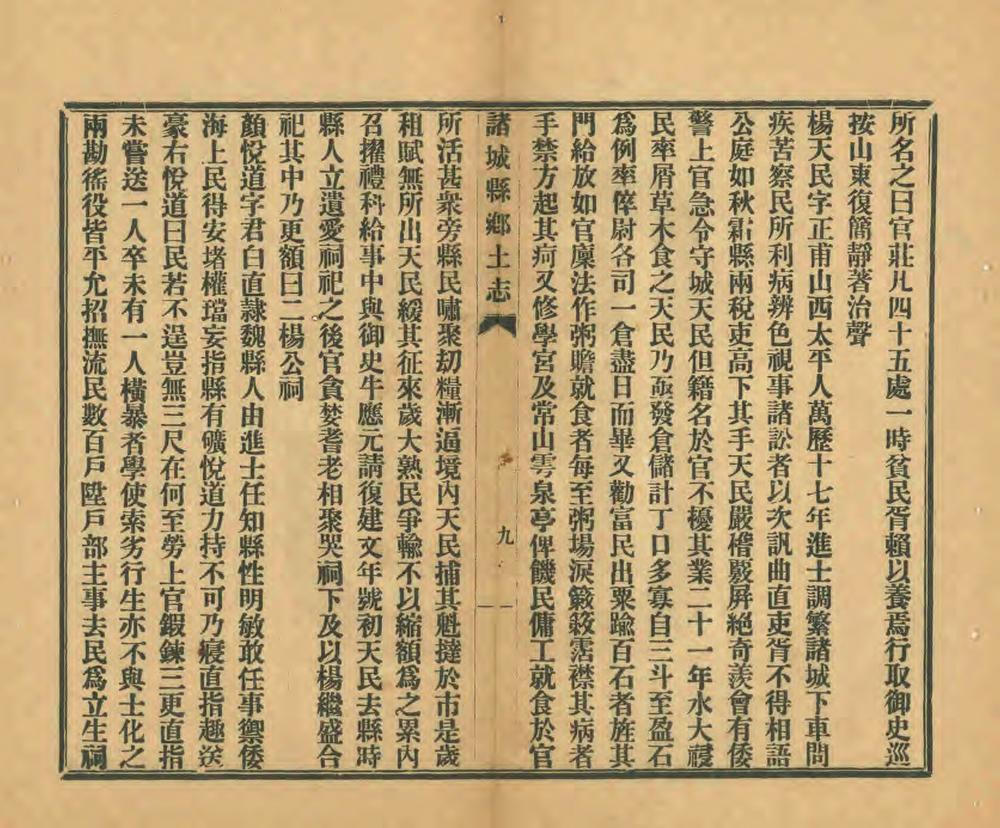 所名之曰官莊凡四十五處一時貧民胥賴以養焉行取御史巡
按山東復簡靜著治聲
楊天民字正甫山西太平人萬歷十七年進士調繁諸城下車問
疾苦察民所利病辨色視事諸訟者以次訊曲直吏胥不得相語
公庭如秋霜縣兩稅吏高下其手天民嚴稽覈屏絕奇羨會有倭
警上官急令守城天民但籍名於官不擾其業二十一年水大祲
民率屑草木食之天民乃亟發倉儲計丁口多寡自三斗至盈石
爲例率倅尉各司一倉盡日而畢又勸富民出粟踰百石者旌其
門給放如官廩法作粥贍就食者每至粥場淚簌簌霑襟其病者
手禁方起其疴又修學宮及常山雩泉亭俾饑民傭工就食於官
諸城縣鄉土志
九
所活甚衆旁縣民嘯聚刧糧漸逼境內天民捕其魁撻於市是歲
租賦無所出天民緩其征來歲大熟民爭輸不以縮額爲之累內
召擢禮科給事中與御史牛應元請復建文年號初天民去縣時
縣人立遺愛祠祀之後官貪婪耆老相聚哭祠下及以楊繼盛合
祀其中乃更額曰二楊公祠
顏悅道字君白直隷魏縣人由進士任知縣性明敏敢任事禦倭
海上民得安堵權璫妄指縣有礦悅道力持不可乃寢直指趣送
豪右悅道曰民若不逞豈無三尺在何至勞上官鍛鍊三更直指
未嘗送一人卒未有一人橫暴者學使索劣行生亦不與士化之
兩勘徭役皆平允招撫流民數百戶陞戶部主事去民爲立生祠